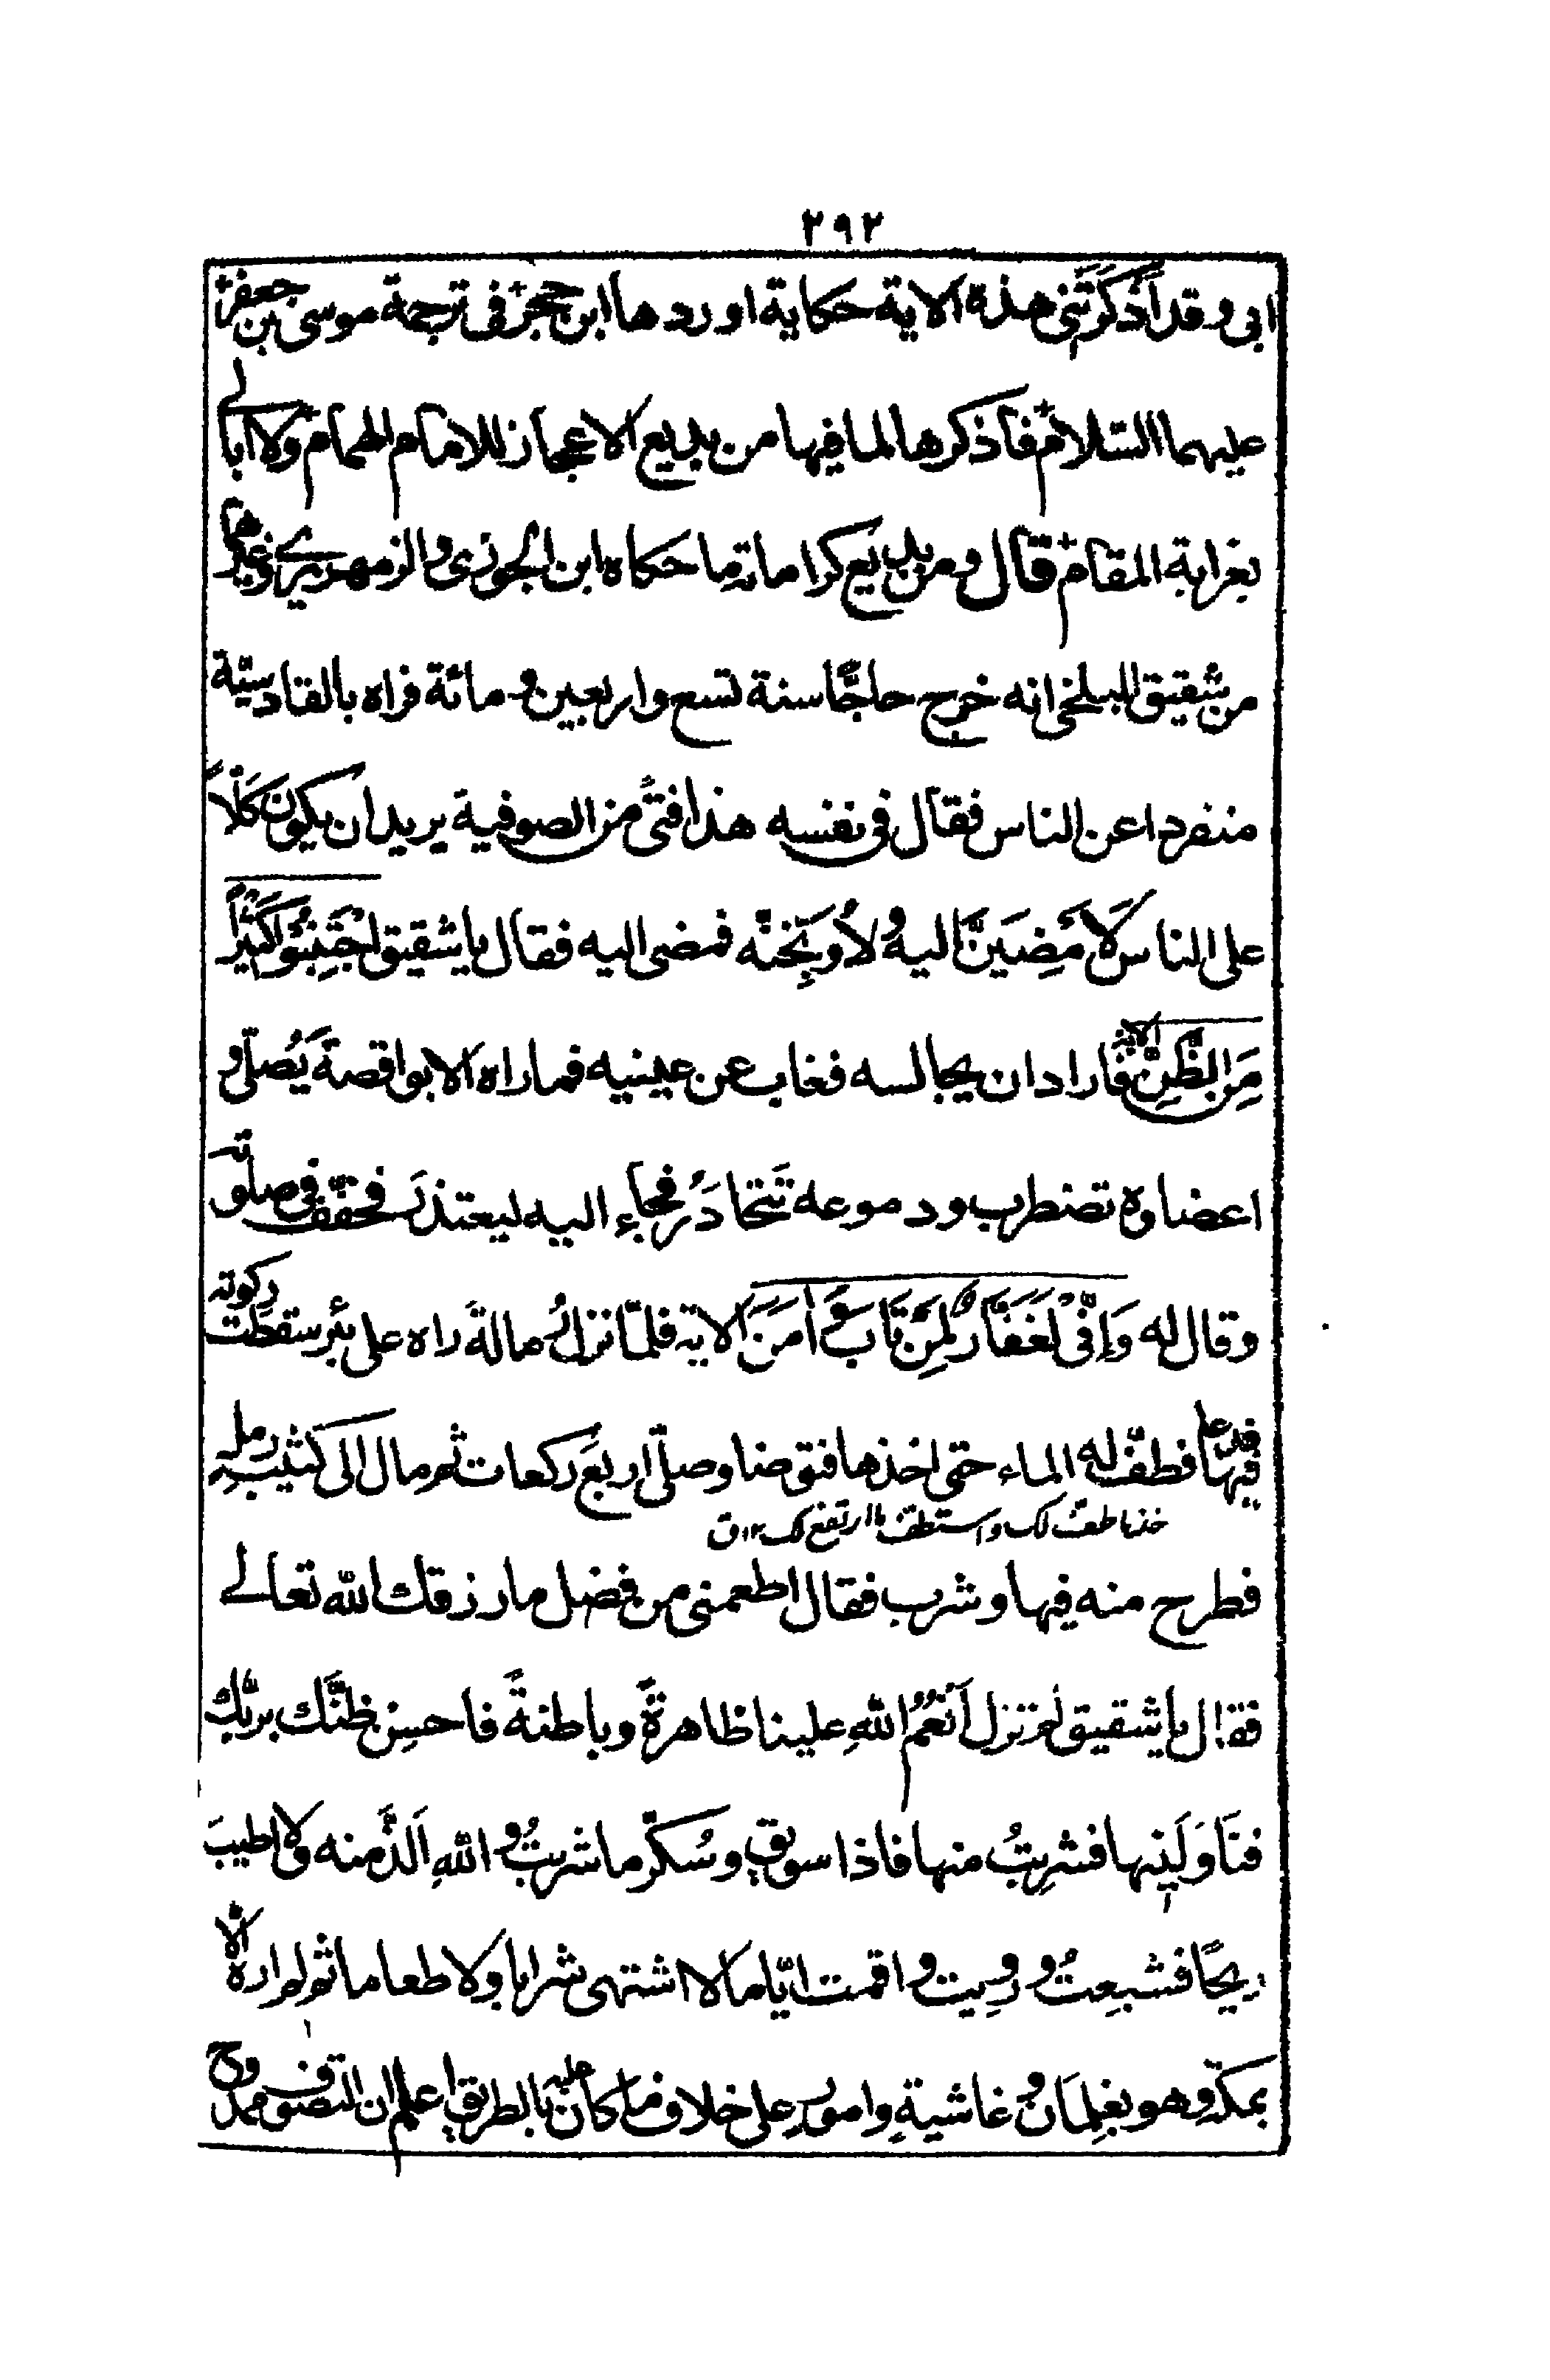 ٢٩٢
ابى وقد اَذْكَرَتْنِى هذه الاية حكاية اوردها ابن حجر فى ترجمة موسى بن جعفر
عليهما السّلام فاذكرها لما فيها من بديع الاعجاز للامام الهمام ولا ابالى
بغرابة المقام قال ومن بديع كراماته ما حكاه ابن الجوزى والزمهريرى وغيرهما
من شقيق البلخى انه خرج حاجًّا سنة تسع واربعين و مائة فراه بالقادسيّة
منفردا عن الناس فقال فى نفسه هذا فتًى من الصوفية يريد ان يكون كَلّاً
على الناس لَاَمْضِيَنَّ اليه ولَاُوَبِّخنّه فمضى اليه فقال يا شقيق اجْتَنِبُوْا كَثِيْراً
مِّنَ الظَّنِّ الاية فاراد ان يجالسه فغاب عن عينيه فما راه الا بواقصة يُصلّى و
اعضاوه تضطرب ودموعه تَتَحَادَرُ فجاء اليه ليعتذر فخفّف فى صلوته
وقال له وَاِنِّىْ لَغَفَّارٌ لِّمَنْ تَابَ وَاٰمَنَ الاية فلمّا نزلُ مالةَ راه على بئر سقطت ركوته
فيها فدعا فطفّ له الماء حتى اخذها فتوضا وصلّى اربعَ ركعات ثم مال الى كثيبِ رمل
خذ ما طفّ لك واستطفّ ما ارتفع لك ١٢ ق
فطرح منه فيها وشرب فقال اطعمنى من فضل ما رزقك الله تعالى
فقال يا شقيق لم تزل اَنْعُمُ اللهِ علينا ظاهرةً وباطنةً فاحسِن ظنَّك بربّك
فنَاوَلَنِيْها فشرِبتُ منها فاذا سويق وسُكّر ما شربتُ واللهِ اَلَذَّ منه ولا اطيبَ
ريحًا فشبِعتُ وروِيت واقمت ايّاما لا اشتهى شرابا ولا طعاما ثم لم اره الا
بمكة وهو بغِلمَان وغاشيةٍ وامورٍ على خلاف ما كان عليه بالطريق اعلم ان التصوف ممدوح